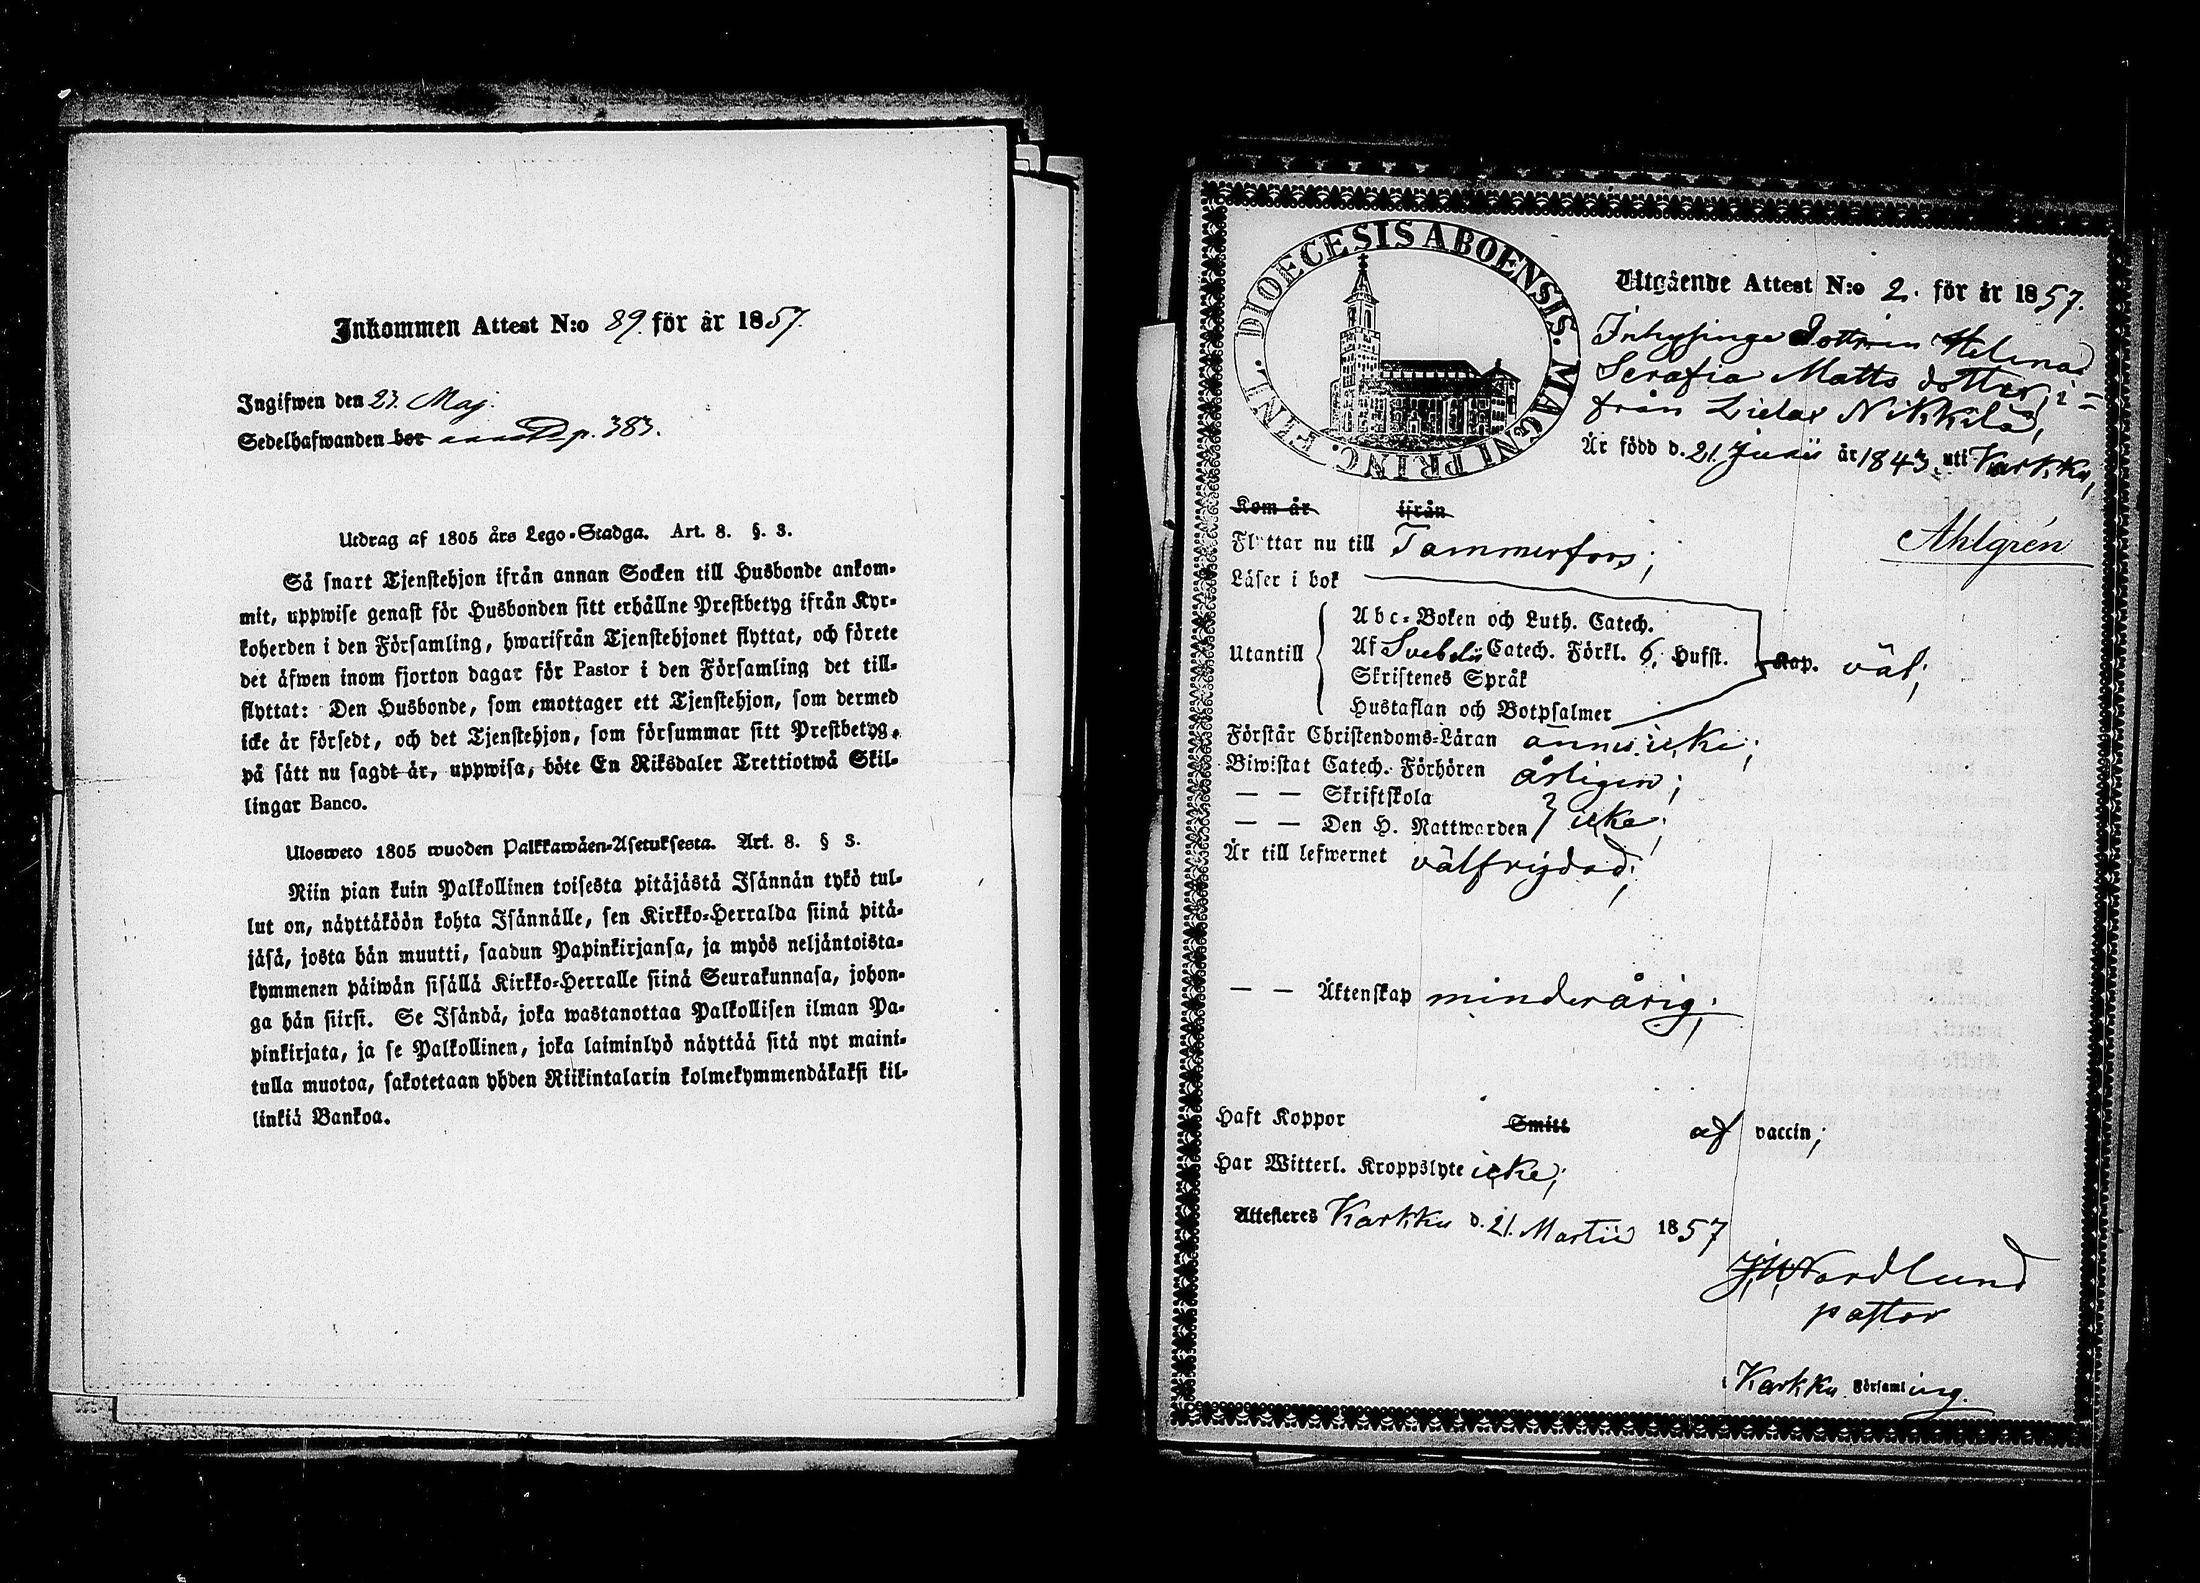 Inkommen Attest N:o 89. för år 1857.
Ingifwen den 23. Maj.
Sedelhafwanden bor p. 383.
Utdrag af 1805 års Lego-Stadga. Art. 8. §. 3.
Så snart Tjenstehjon ifrån annan Socken till Husbonde ankom-
mit, uppwise genast för Husbonden sitt erhållne Prestbetyg ifrån Kyr-
koherden i den Församling, hwarifrån Tjenstehjonet flyttat, och förete
det äfwen inom fjorton dagar för Pastor i den Församling det till-
flyttat: Den Husbonde, som emottager ett Tjenstehjon, som dermed
icke är försedt, och det Tjenstehjon, som försummar sitt Prestbetyg,
på sätt nu sagdt är, uppwisa, böte En Riksdaler Trettiotwå Skil-
lingar Banco.
Ulosweto 1805 wuoden Palkkawäen-Asetuksesta. Art. 8. § 3.
Niin pian kuin Palkollinen toisesta pitäjästä Isännän tykö tul-
lut on, näyttäköön kohta Isännälle, sen Kirkko-Herralda siinä pitä-
jäsä, josta hän muutti, saadun Papinkirjansa, ja myös neljäntoista-
kymmenen päiwän sisällä Kirkko-Herralle siinä Seurakunnasa, johon-
ga hän siirsi. Se Isändä, joka wastanottaa Palkollisen ilman Pa-
pinkirjata, ja se Palkollinen, joka laiminlyö näyttää sitä nyt maini-
tulla muotoa, sakotetaan yhden Riikintalarin kolmekymmendäkaksi kil-
linkiä Bankoa.
DIOECESIS ABOENSIS. MAGNI PRINC. FINL.
Utgående Attest N:o 2. för år 1857.
Inhysinge Dottren Helena
Serafia Matts dotter, i-
från Lielax Nikkilä,
Är född d. 21. Junii år 1843. uti Karkku,
Kom år ifrån
Ahlgrén
Flyttar nu till Tammerfors;
Läser i bok
Abc-Boken och Luth. Catech.
Utantill Af Svebelii Catech. Förkl. 6. Hufst. Kap. väl;
Skriftenes Språk
Hustaflan och Botpsalmer
Förstår Christendoms-Läran ännu icke;
Biwistat Catech. Förhören årligen;
— — Skriftskola
— — Den H. Nattwarden } icke;
Är till lefwernet välfrejdad;
— — Äktenskap minderårig;
Haft Koppor Smitt af vaccin;
Har Witterl. Kroppslyte icke;
Attesteres Karkku d. 21. Martii 1857
Nordlund
pastor
i Karkku Församling.